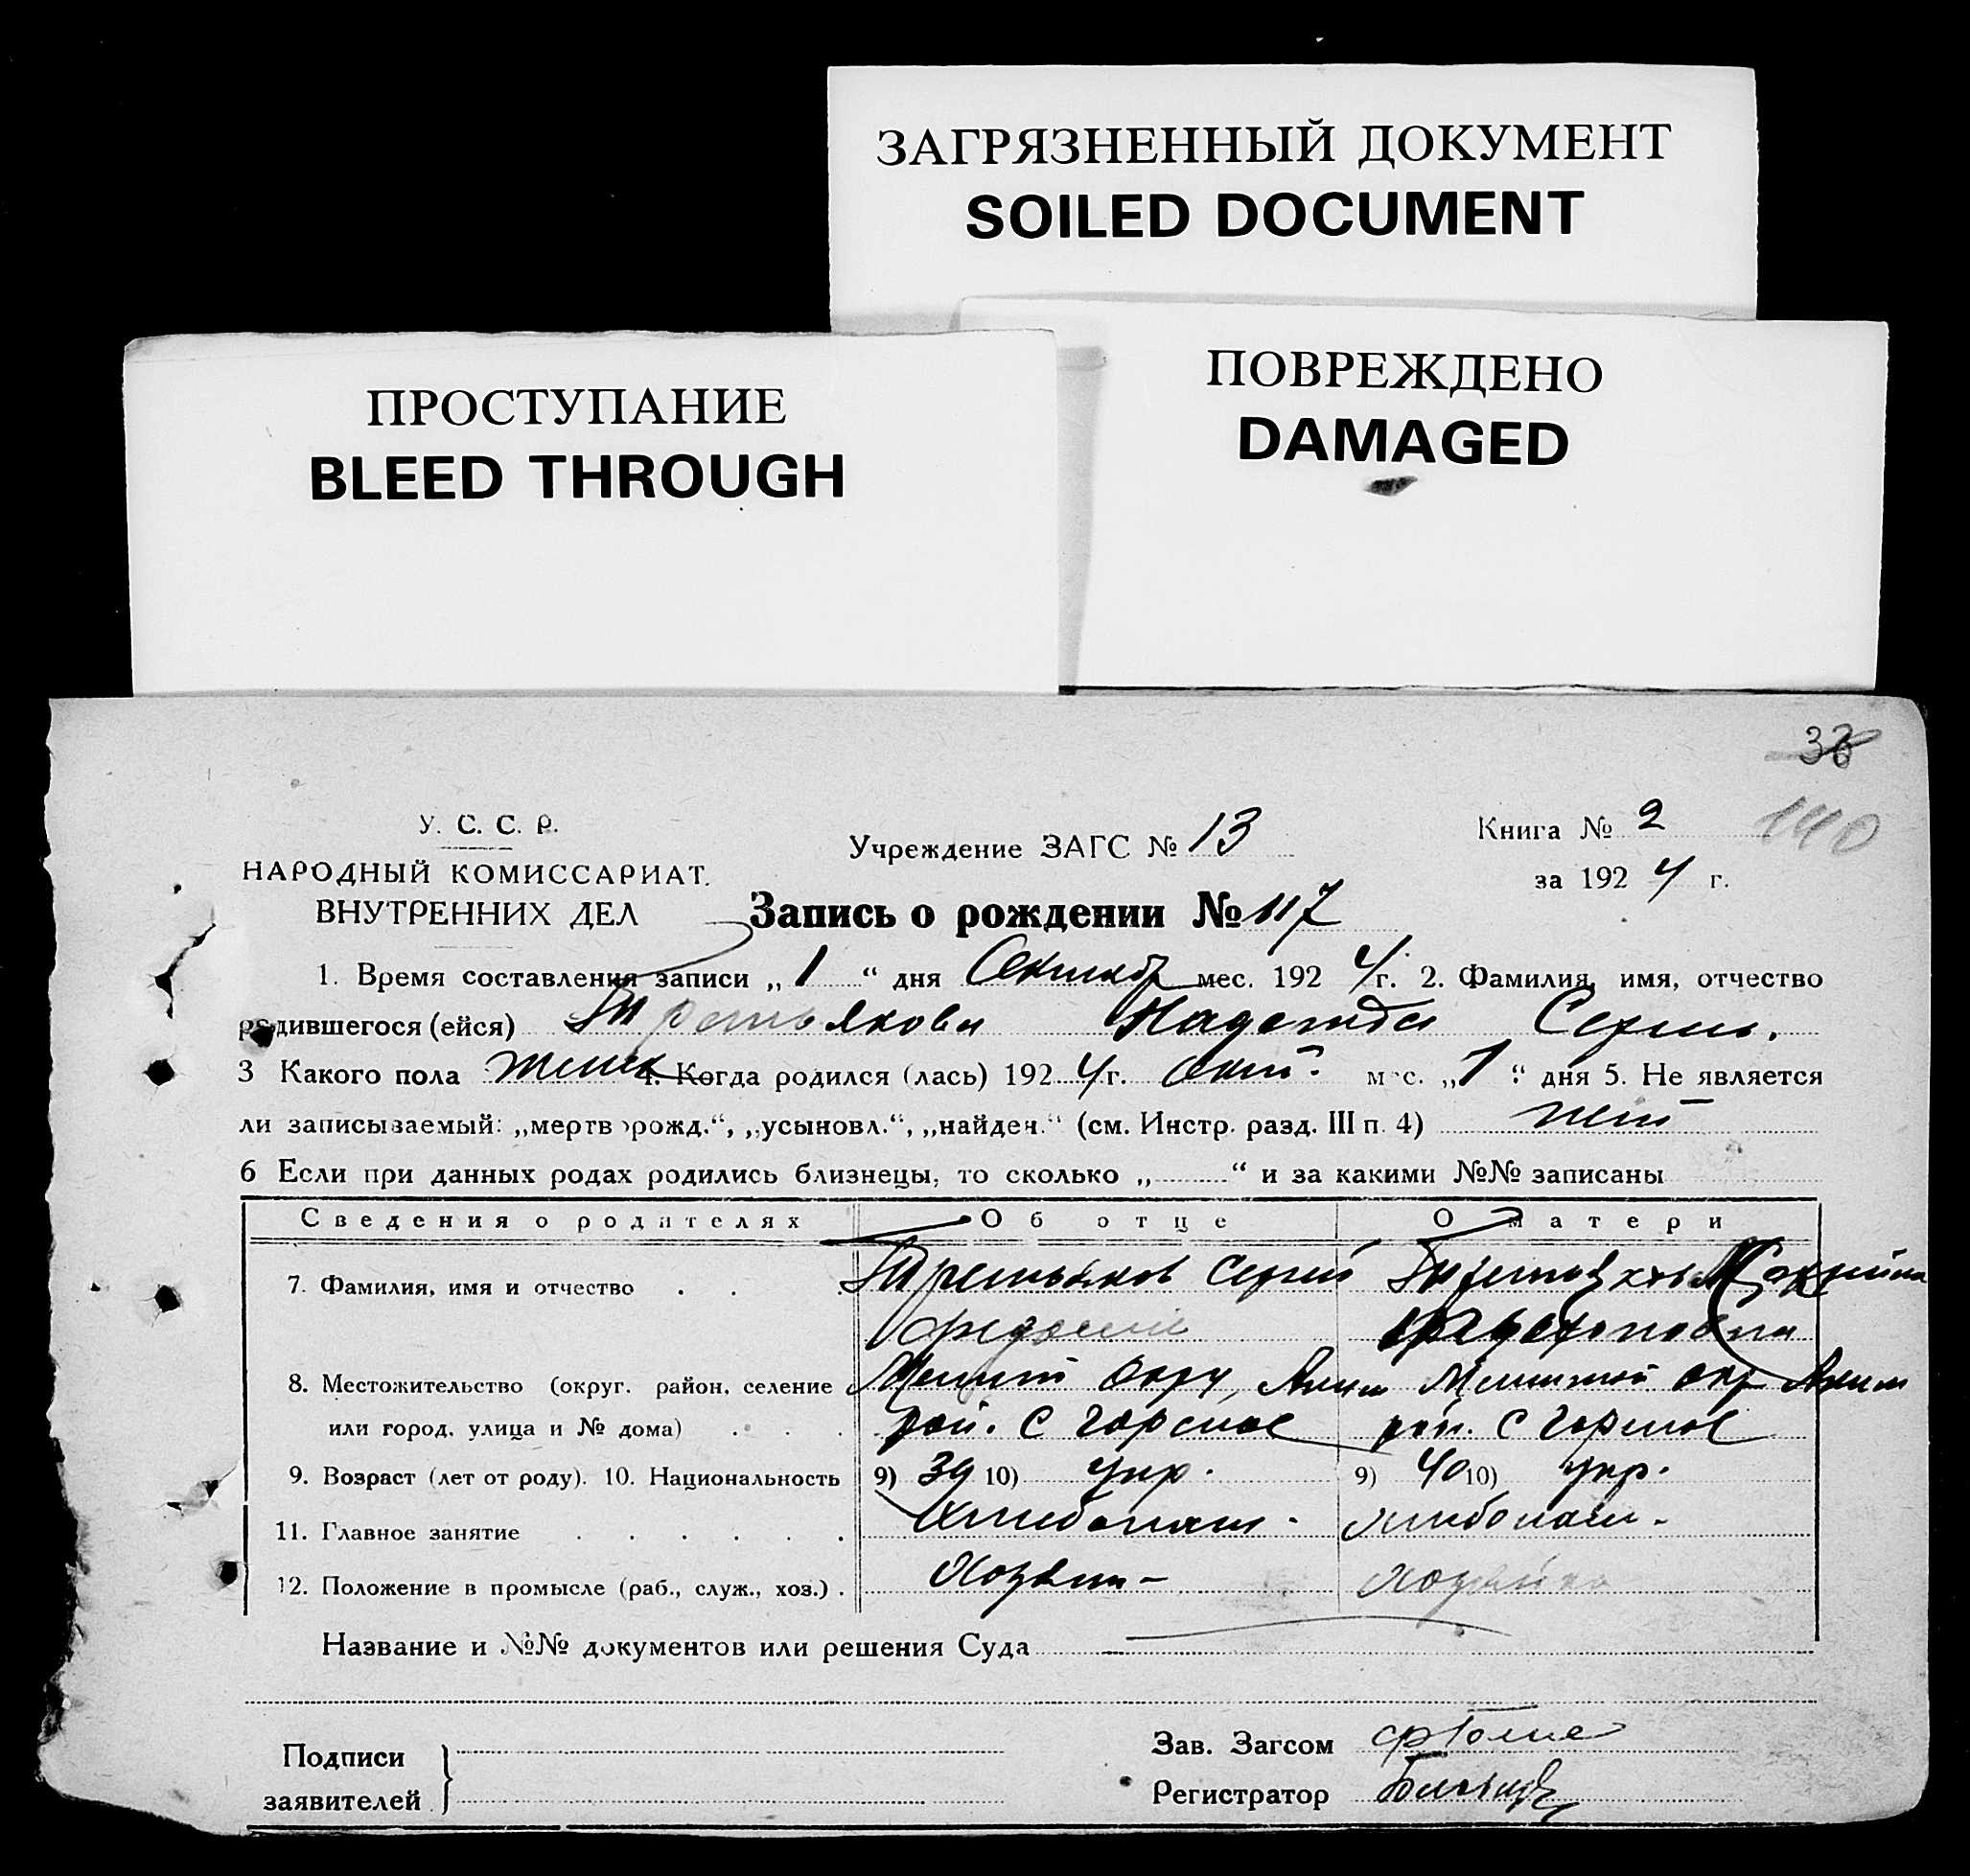 ЗАГРЯЗНЕННЫЙ ДОКУМЕНТ
SOILED DOCUMENT
ПРОСТУПАНИЕ
BLEED THROUGH
ПОВРЕЖДЕНО
DAMAGED
33
140
У. С. С. Р.
НАРОДНЫЙ КОМИССАРИАТ.
ВНУТРЕННИХ ДЕЛ
Учреждение ЗАГС № 13
Книга № 2
за 1924 г.
Запись о рождении № 117
1. Время составления записи „1“ дня Октябр мес. 1924 г. 2. Фамилия, имя, отчество
родившегося (ейся) Третьякова Надежда Серги.
3 Какого пола женск 4. Когда родился (лась) 1924 г. Окт. мес. „1“ дня 5. Не является
ли записываемый: „мертворожд.“, „усыновл.“, „найден.“ (см. Инстр. разд. III п. 4) нет
6 Если при данных родах родились близнецы, то сколько „ “ и за какими №№ записаны
Сведения о родителях Об отце О матери
7. Фамилия, имя и отчество Третьяков Сергей
8. Местожительство (округ. район, селение окру, окр
или город, улица и № дома) рай. с рай. с
9. Возраст (лет от роду). 10. Национальность 9) 39 10) укр. 9) 40 10) укр.
11. Главное занятие Хлибопаш. хлибопаш.
12. Положение в промысле (раб., служ., хоз.) Хозяин хозяйка
Название и №№ документов или решения Суда
Подписи
заявителей
Зав. Загсом
Регистратор